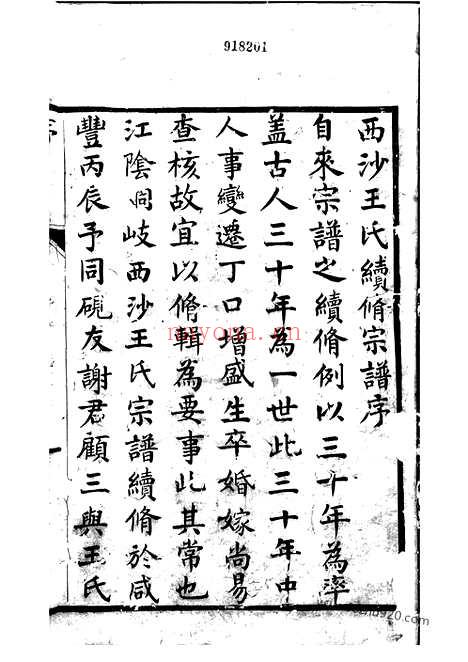 918201
西沙王氏續脩宗譜序
自來宗譜之續脩例以三十年為率
盖古人三十年為一世此三十年中
人事變遷丁口增盛生卒婚嫁尚易
查核故宜以脩輯為要事此其常也
江陰周岐西沙王氏宗譜續脩於咸
豐丙辰予同硯友謝君顧三與王氏
序
nayona.cn